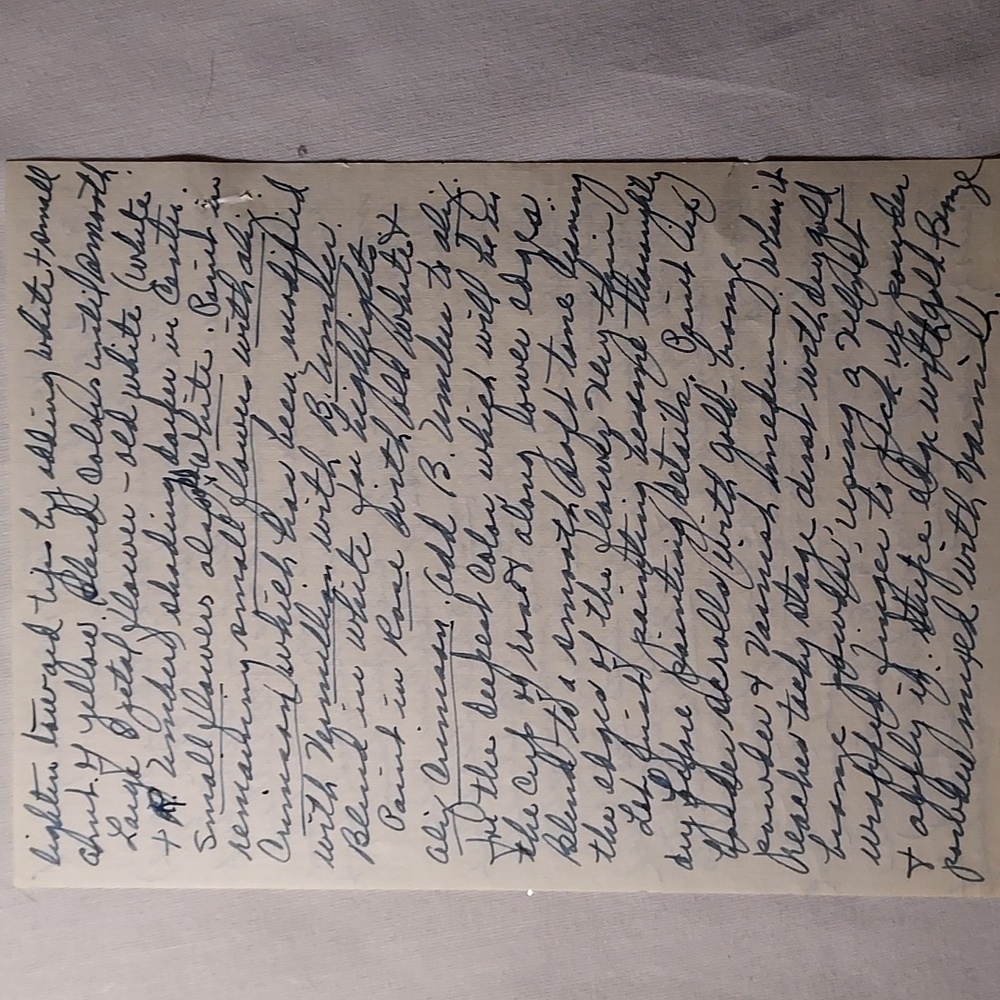 lighten toward tips by adding white & small
amt. of yellow. Blend colors until smooth.
Large 5 petal flower - old white (white
+ R Umber) shading darker in center.
Small flowers also in white. Paint in
remaining small flowers with aliz
Crimson which has been modified
with Vermillion with B. Umber.
Blend in white for highlights
Paint in Rose with old white &
aliz Crimson. Add B. Umber to aliz.
for the deepest color which will be in
the cup of rose & along lower edges.
Blend to a smooth soft tone leaving
the edges of the flowers very thin.
Let finished painting become thoroughly
dry before painting details. Paint
border scrolls with gold bronze
powder & varnish mixed. When it
reaches tacky stage dust with dry gold
bronze powder, using a velvet
wrapped finger to pick up powder
& apply it. Stripe edge with gold Bronze
powder mixed with varnish